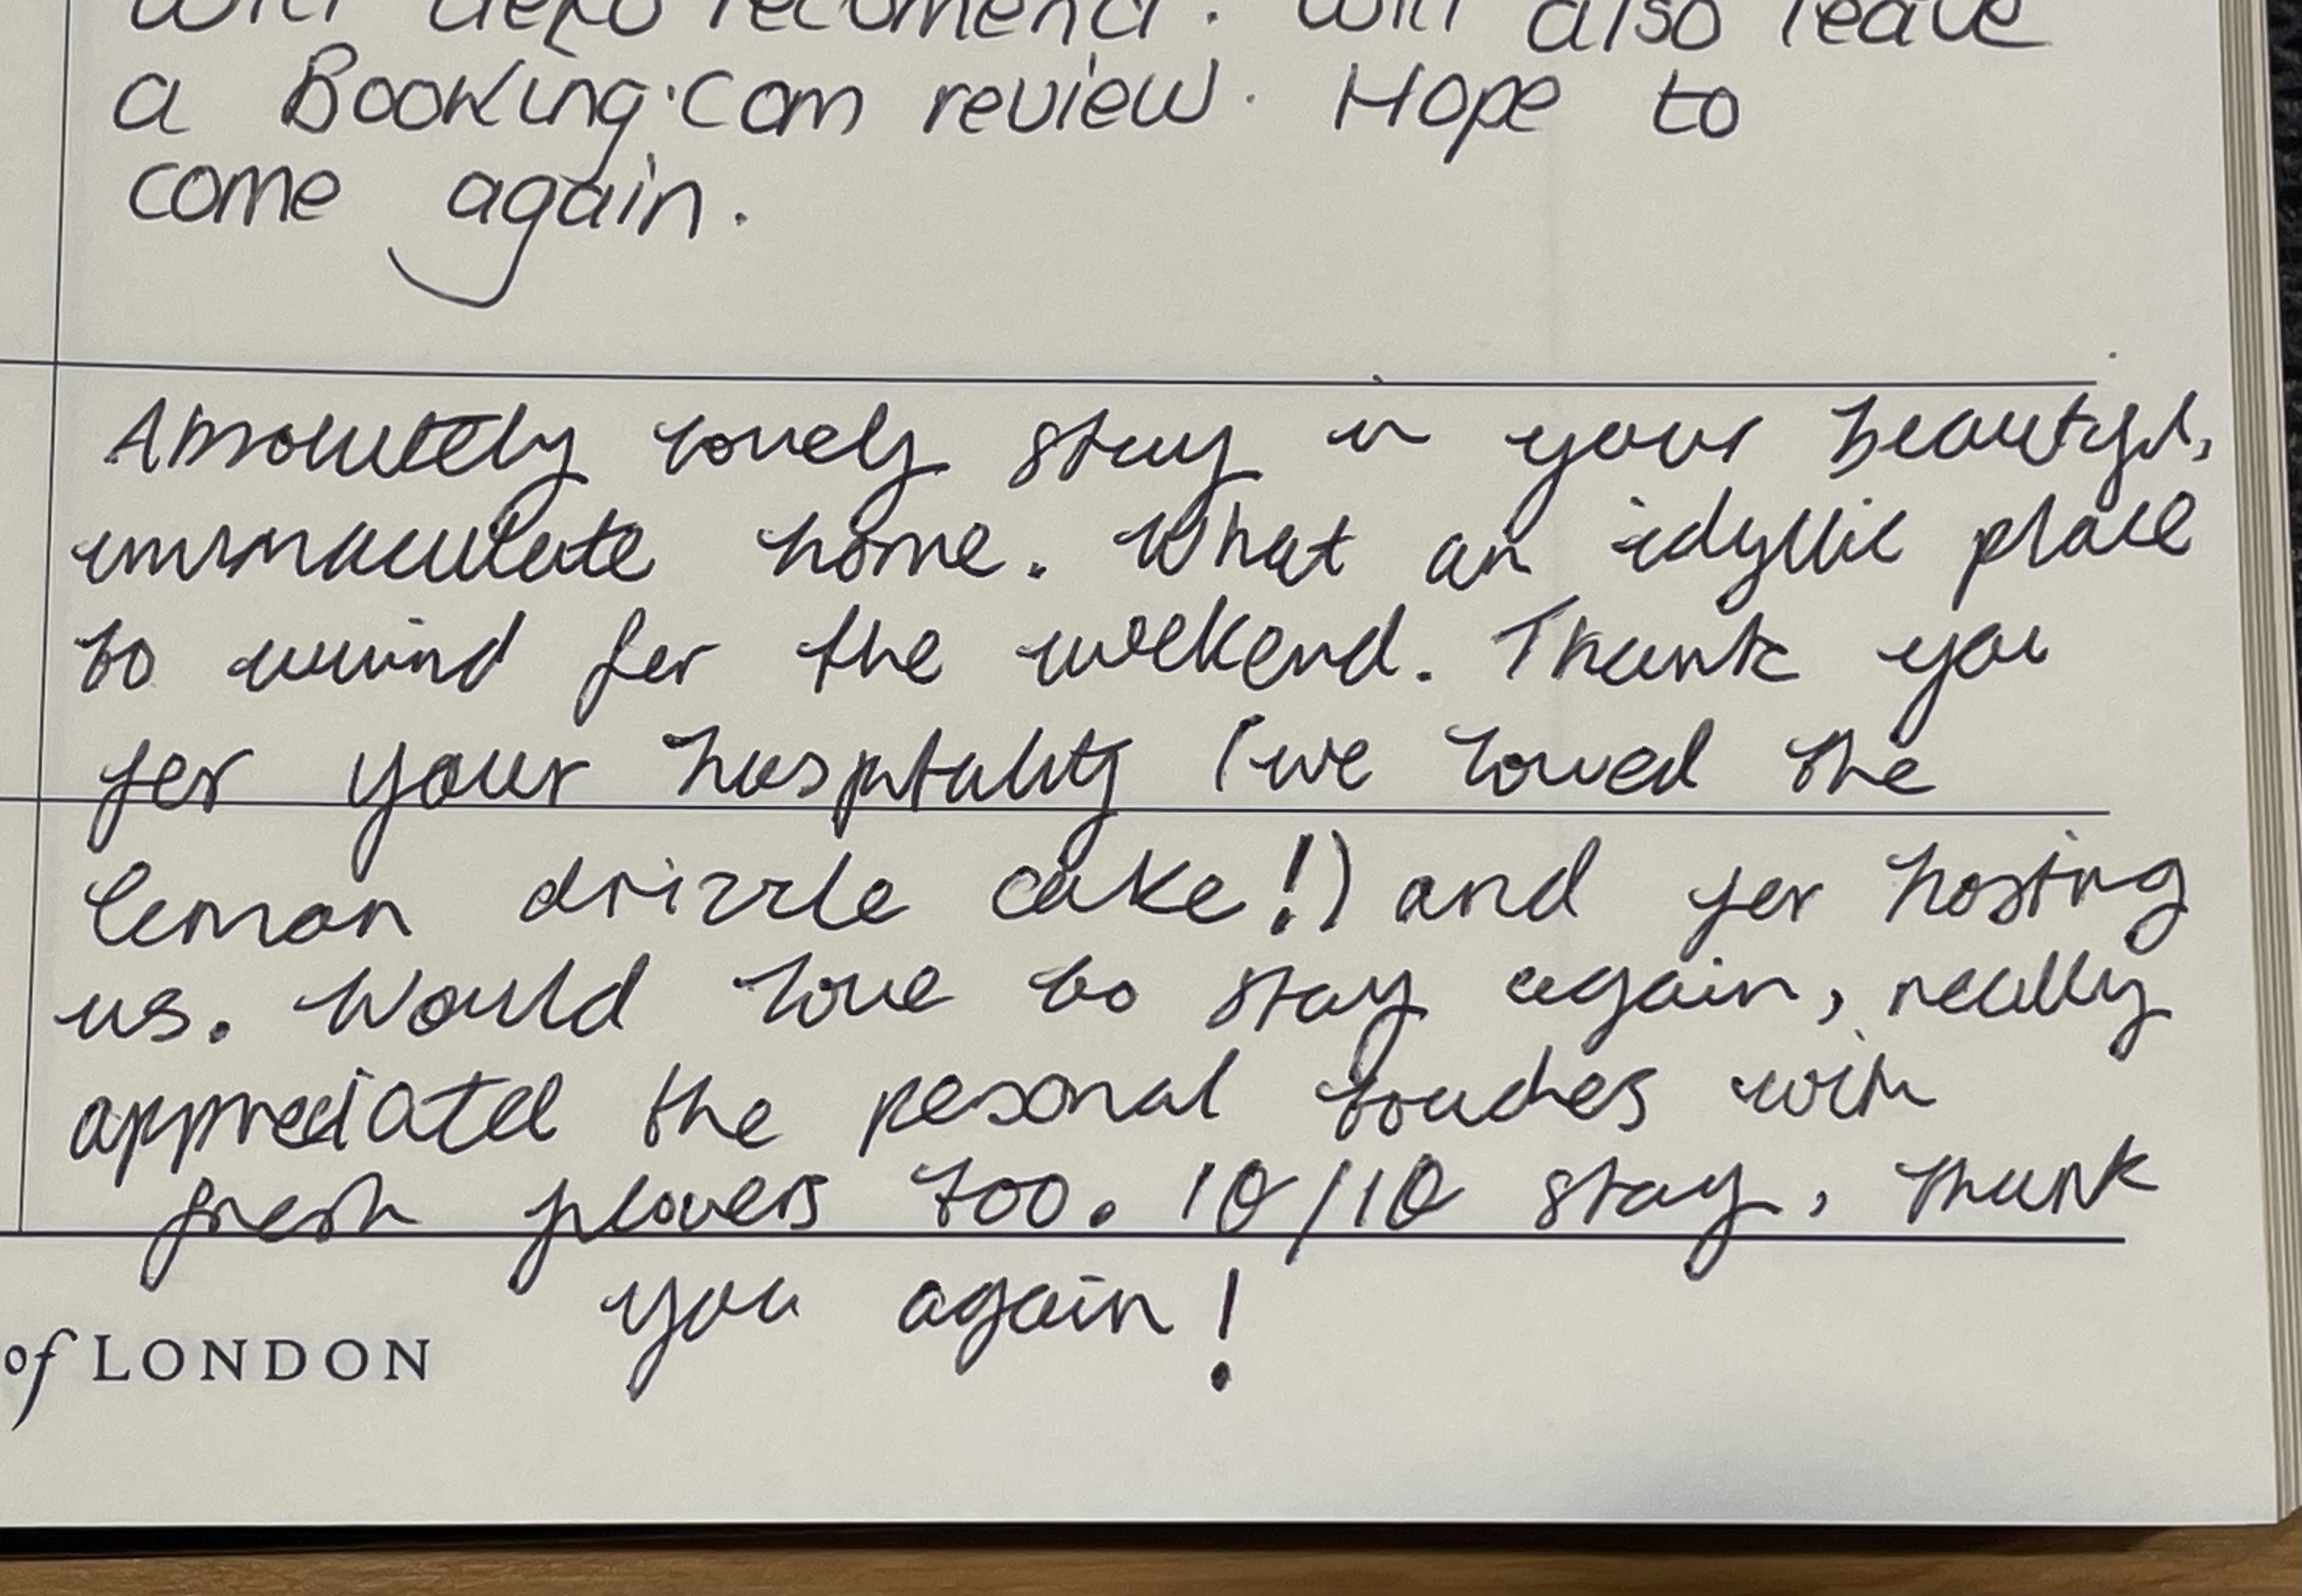 will defo recomend. Will also leave
a Booking.com review. Hope to
come again.
Absolutely lovely stay in your beautiful,
immaculate home. What an idyllic place
to unwind for the weekend. Thank you
for your hospitality (we loved the
lemon drizzle cake!) and for hosting
us. Would love to stay again, really
appreciated the pesonal touches with
fresh flowers too. 10/10 stay, thank
you again!
of LONDON